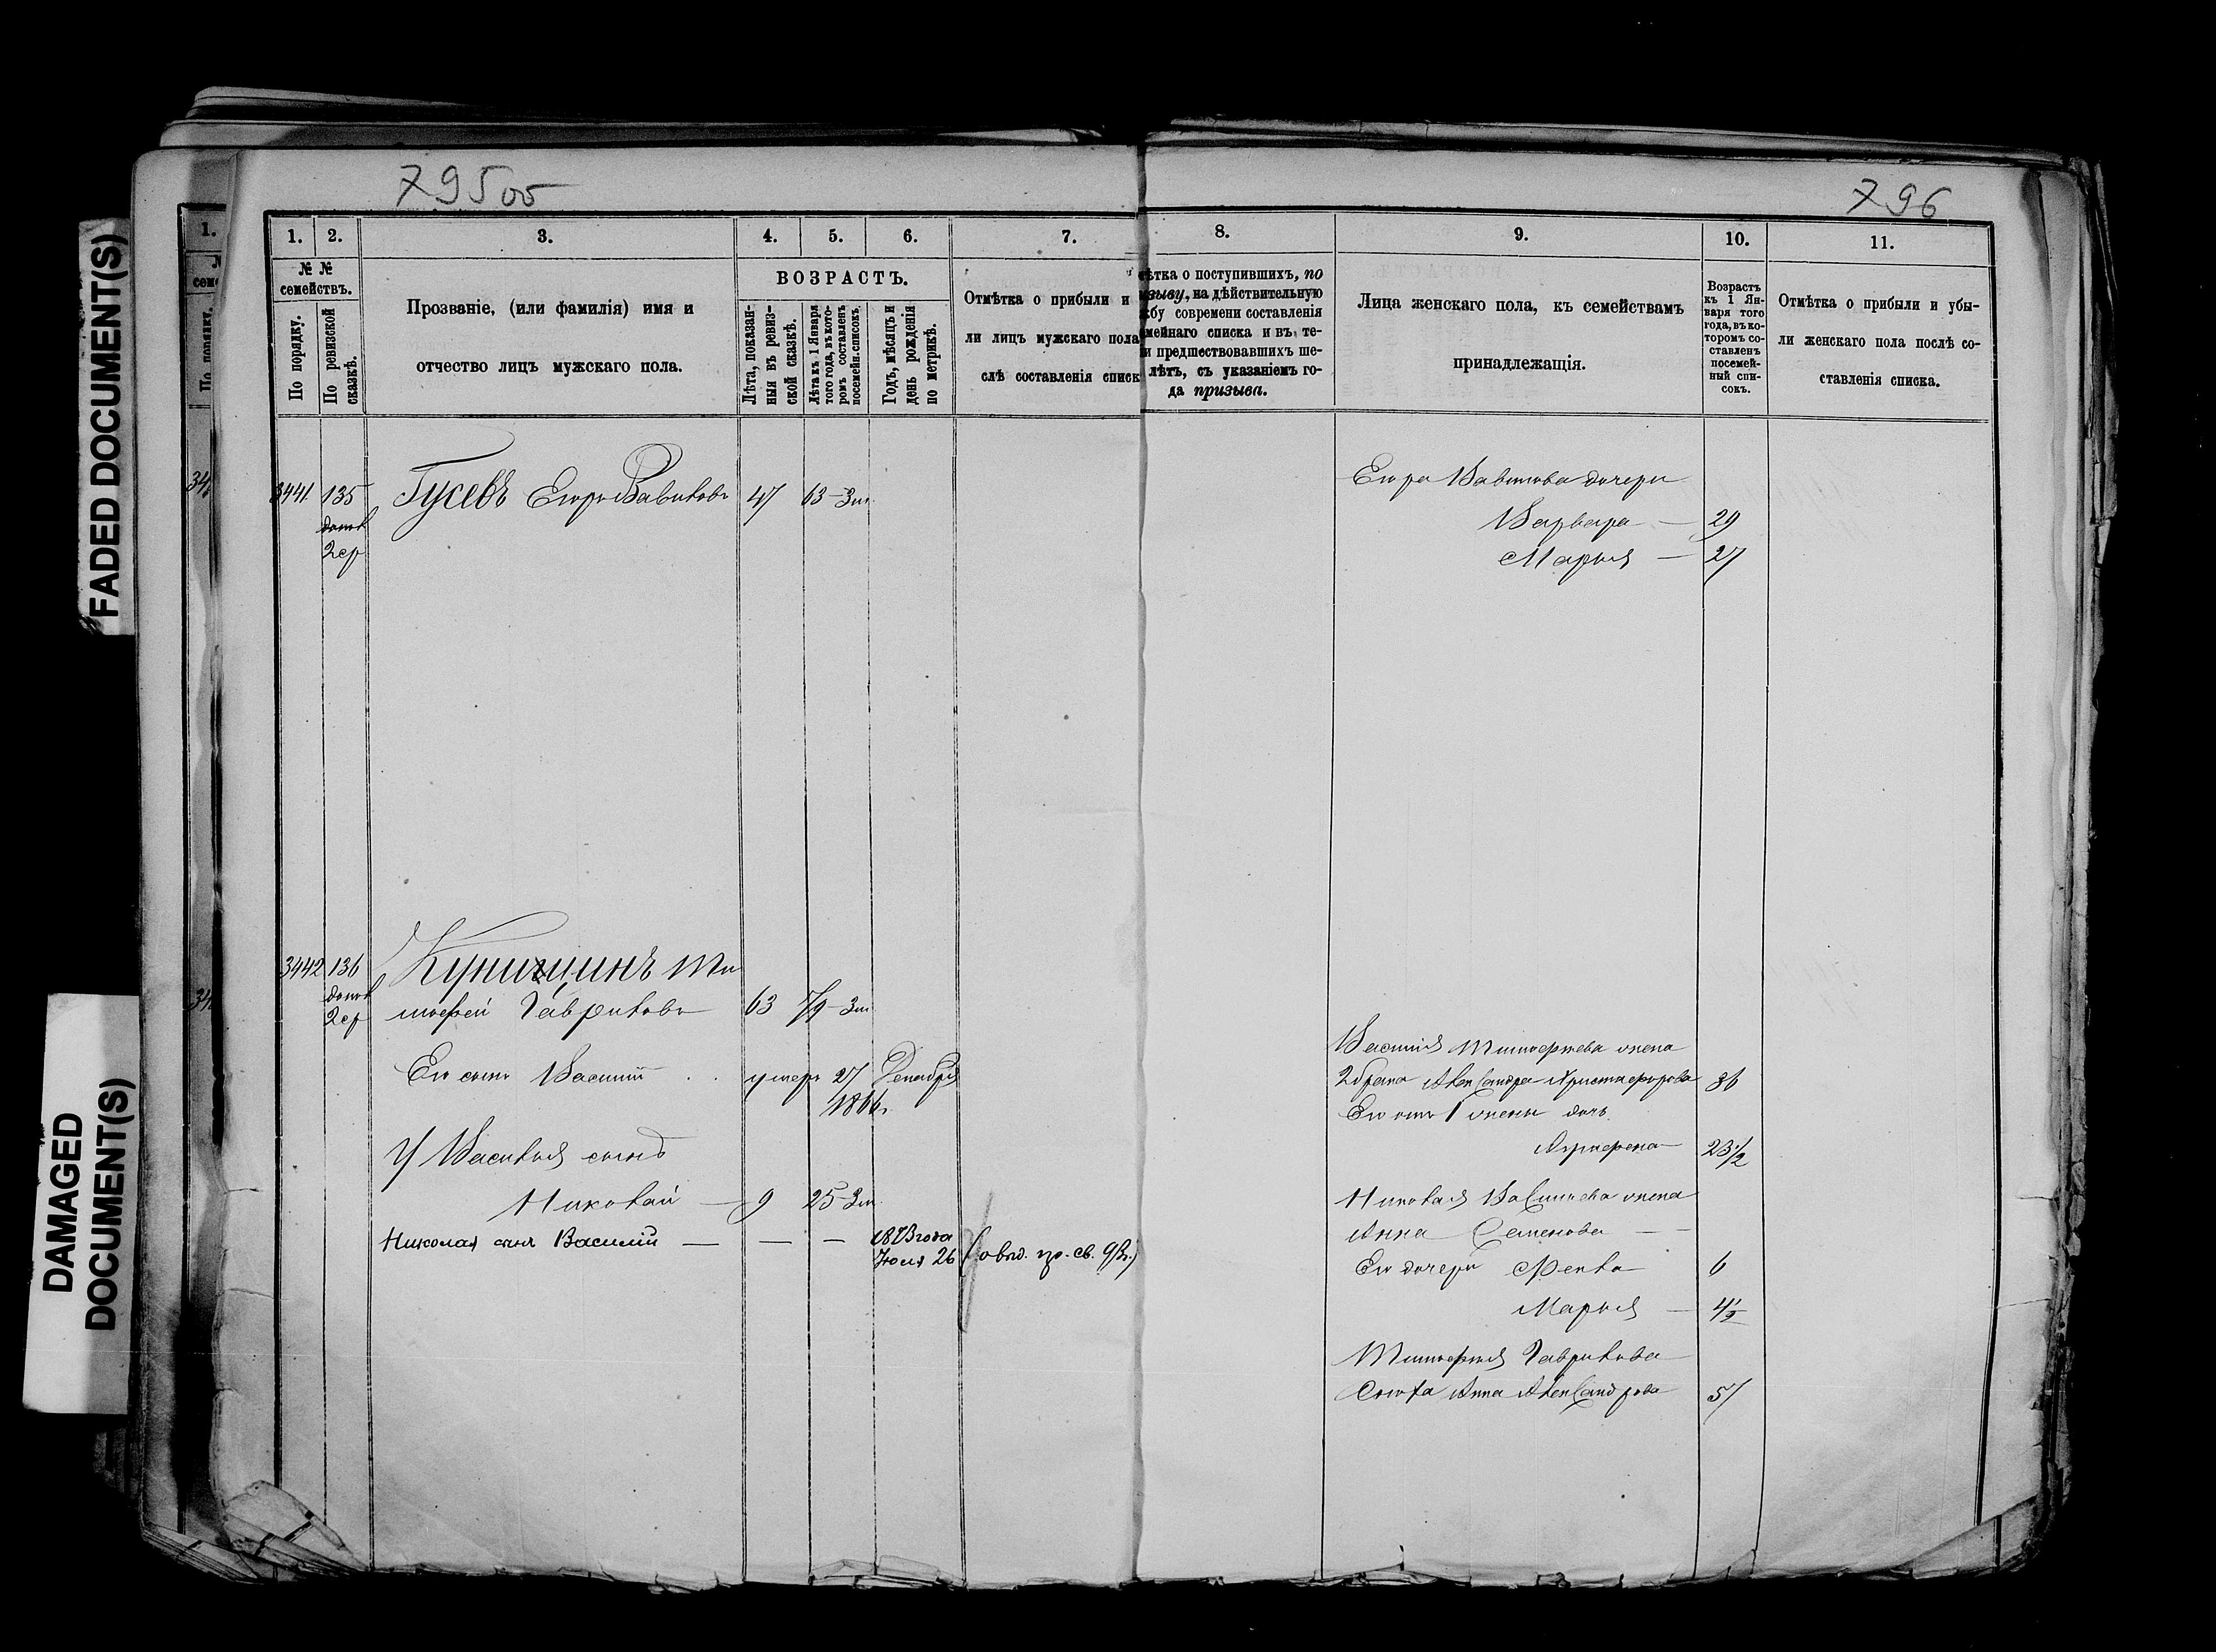 FADED DOCUMENT(S)
DAMAGED
DOCUMENT(S)
795 об
796
1. 2. 3. 4. 5. 6. 7. 8. 9. 10. 11.
№ №
семействъ.
По порядку.
По ревизской
сказкѣ.
Прозваніе, (или фамилія) имя и
отчество лицъ мужскаго пола.
ВОЗРАСТЪ.
Лѣта, показан-
ныя въ ревиз-
ской сказкѣ.
Лѣта къ 1 Января
того года, въ кото-
ромъ составленъ
посемейн. списокъ.
Годъ, мѣсяцъ и
день рожденія
по метрикѣ.
Отмѣтка о прибыли и
ли лицъ мужскаго пола
слѣ составленія списк
ѣтка о поступившихъ, по
изыву, на дѣйствительную
жбу современи составленія
мейнаго списка и въ те-
и предшествовавшихъ ше-
лѣтъ, съ указаніемъ го-
да призыва.
Лица женскаго пола, къ семействамъ
принадлежащія.
Возрастъ
къ 1 Ян-
варя того
года, въ ко-
торомъ со-
ставленъ
посемей-
ный спи-
сокъ.
Отмѣтка о прибыли и убы-
ли женскаго пола послѣ со-
ставленія списка.
3441 135 Гусевъ Егоръ Вавиловъ 47 63
2ср
Егора Вавилова дочери
Варвара — 29
Марья — 27
3442 136 Куницинъ Ти
2ср
мофей Гавриловъ 63 79
Его сынъ Василій умеръ 27 Декабря
1866г.
У Василья сынъ
Николай — 9 25
Николая сынъ Василій — — — 1873 года
Іюля 26
Василія Тимофеева жена
2 брака Александра Христофорова 36
Его отъ 1 жены дочь
Аграфена 23½
Николая Васильева жена
Анна Семенова —
Его дочери Фекла 6
Марья — 4½
Тимофея Гаврилова
сноха Анна Александрова 57